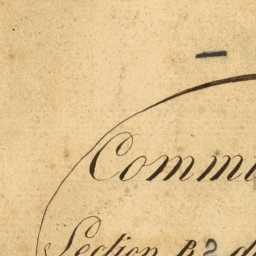 Commi
Section B2 d